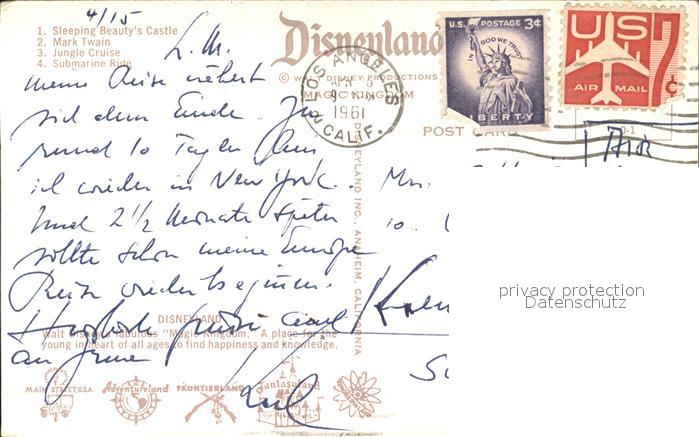 4/15
1. Sleeping Beauty's Castle
2. Mark Twain
3. Jungle Cruise
4. Submarine Ride
Disneyland
© WALT DISNEY PRODUCTIONS
MAGIC KINGDOM
L. M.
meine Reise nähert
sich dem Ende. In
rund 10 Tagen bin
ich wieder in New York.
Und 2 1/2 Monate später
sollte schon meine Europa
Reise wieder beginnen.
Herzliche Grüße
an
LOS ANGELES
1961
CALIF.
U.S. POSTAGE 3¢
IN GOD WE TRUST
LIBERTY
US
AIR MAIL 7¢
POST CARD
AIR
Mrs.
10.
DISNEYLAND INC., ANAHEIM, CALIFORNIA
privacy protection
Datenschutz
DISNEYLAND
Walt Disney's fabulous "Magic Kingdom." A place for the
young in heart of all ages to find happiness and knowledge.
MAIN STREET, U.S.A.
Adventureland
FRONTIERLAND
Fantasyland